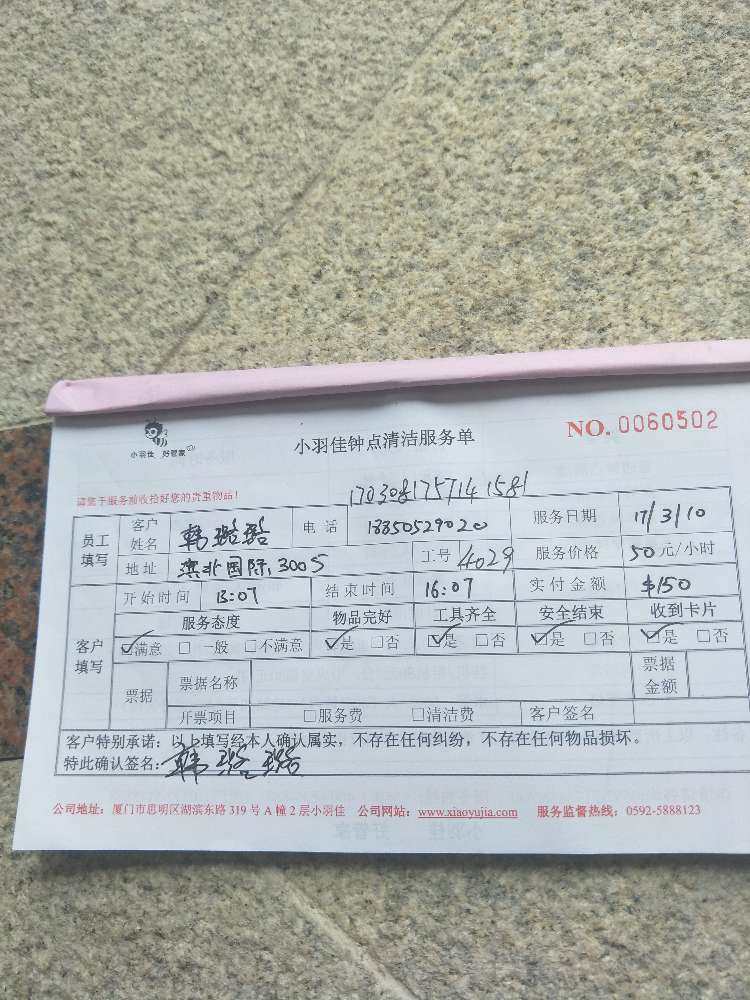 小羽佳 好管家
小羽佳钟点清洁服务单
NO. 0060502
请您于服务前收拾好您的贵重物品！
170308175714 1581
员工填写 客户姓名 韩璐璐 电话 18850529020 服务日期 17/3/10
地址 滨北国际,3005 工号 4029 服务价格 50元/小时
客户填写 开始时间 13:07 结束时间 16:07 实付金额 $150
服务态度 物品完好 工具齐全 安全结束 收到卡片
☑满意 □一般 □不满意 ☑是 □否 ☑是 □否 ☑是 □否 ☑是 □否
票据 票据名称 票据金额
开票项目 □服务费 □清洁费 客户签名
客户特别承诺：以上填写经本人确认属实，不存在任何纠纷，不存在任何物品损坏。
特此确认签名：韩璐璐
公司地址：厦门市思明区湖滨东路 319 号 A 幢 2 层小羽佳 公司网站：www.xiaoyujia.com 服务监督热线：0592-5888123